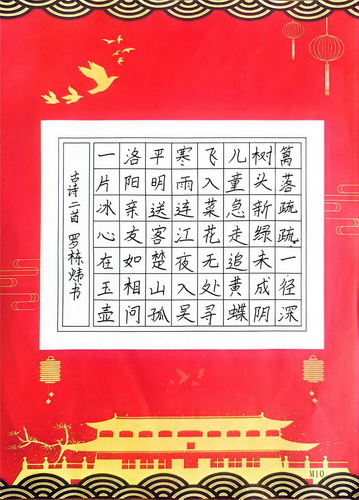 篱落疏疏一径深
树头新绿未成阴
儿童急走追黄蝶
飞入菜花无处寻
寒雨连江夜入吴
平明送客楚山孤
洛阳亲友如相问
一片冰心在玉壶
古诗二首 罗栋炜书
M10